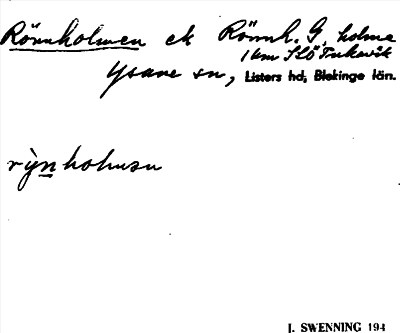 Rönnholmen ek Rönnh. G. holme
1 km SLÖ Tukavik
Ysane sn, Listers hd, Blekinge län.
rỳnholmən
J. SWENNING 194